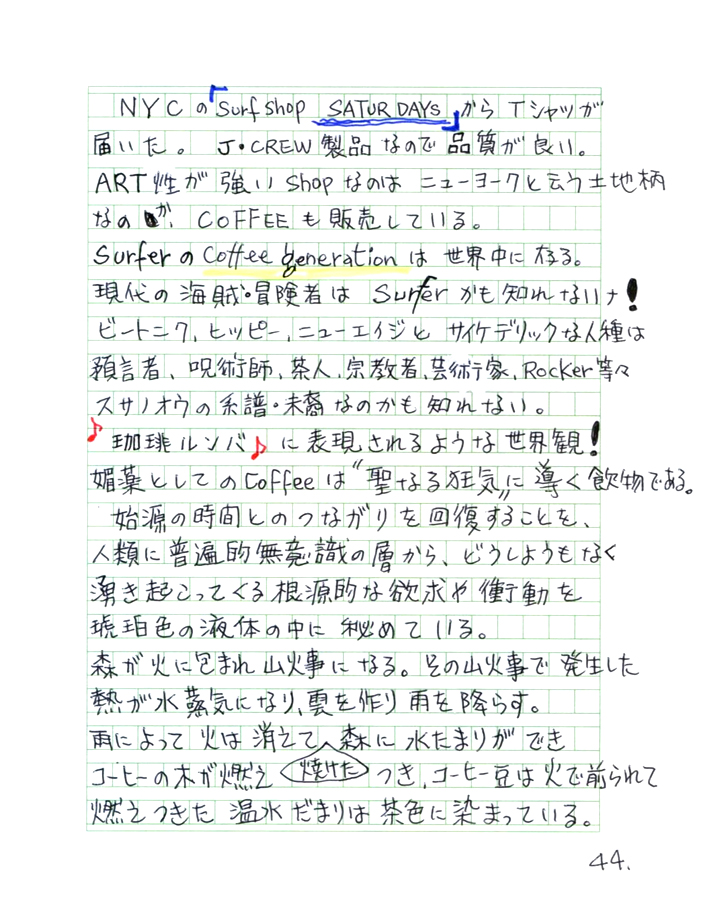 NYCの「Surf shop SATURDAYs」からTシャツが
届いた。 J・CREW製品なので品質が良い。
ART性が強いshopなのはニューヨークと云う土地柄
なのか、COFFEEも販売している。
SurferのCoffee generationは世界中に在る。
現代の海賊・冒険者はSurferかも知れないナ!
ビートニク、ヒッピー、ニューエイジとサイケデリックな人種は
預言者、呪術師、茶人、宗教者、芸術家、Rocker等々
スサノオウの系譜・末裔なのかも知れない。
♪珈琲ルンバ♪に表現されるような世界観!
媚薬としてのCoffeeは〝聖なる狂気〟に導く飲物である。
始源の時間とのつながりを回復することを、
人類に普遍的無意識の層から、どうしようもなく
湧き起こってくる根源的な欲求や衝動を
琥珀色の液体の中に秘めている。
森が火に包まれ山火事になる。その山火事で発生した
熱が水蒸気になり、雲を作り雨を降らす。
雨によって火は消えて森に水たまりができ
焼けた
コーヒーの木が燃えつき、コーヒー豆は火で煎られて
燃えつきた温水だまりは茶色に染まっている。
44.